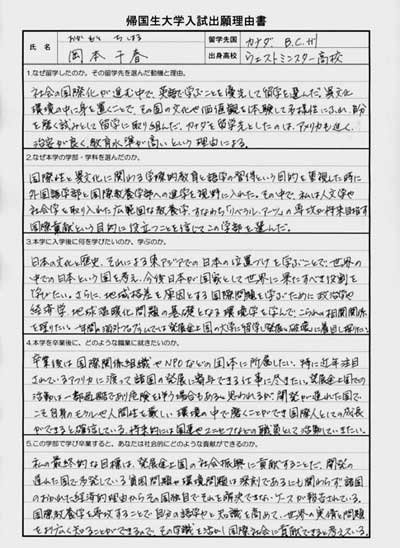 帰国生大学入試出願理由書
氏名
おかもと ちはる
岡本千春
留学先国
カナダ、B.C.州
出身高校
ウェストミンスター高校
1.なぜ留学したのか。その留学先を選んだ動機と理由。
社会の国際化が進む中で、英語で学ぶことを優先して留学を選んだ。異文化
環境の中に身を置くことで、その国の文化や価値観を体験して多様性にふれ、自分
を磨く試みとして留学に取り組んだ。カナダを留学先としたのは、アメリカも近く、
治安が良く教育水準が高いという理由による。
2.なぜ本学の学部・学科を選んだのか。
国際性と異文化に関わる学際的教育と語学の習得という目的を重視した時に
外国語学部と国際教養学部への進学を視野に入れた。その中で、私は人文学や
社会学を取り入れた広範囲な教養学、すなわち「リベラル・アーツ」の専攻が将来目指す
国際貢献という目的に役立つことを信じてこの学部を選んだ。
3.本学に入学後に何を学びたいのか、学ぶのか。
日本の文化と歴史、それによる東アジアでの日本の位置づけを学ぶことで、世界の
中での日本という国を考え、今後日本が国家として世界に果たすべき役割を
学びたい。さらに、地域格差を原因とする国際問題を学ぶために政治学や
経済学、地球温暖化問題の基礎となる環境学を学んで、これらの相関関係
を探りたい。
4.本学を卒業後に、どのような職業に就きたいのか。
卒業後は国際関係組織やNPOなどの団体に所属したい。特に近年注目
されているアフリカに渡って諸国の発展に寄与できる仕事に尽きたい。発展途上国での
活動は一部過酷であり危険も伴う場合もあると思われるが、開発が遅れた国で
こそ自身のモラルや人間性を厳しい環境の中で磨くことができ国際人としての成長
ができると確信している。将来的には国連やユニセフなどの職員として活動していきたい。
5.この学部で学び卒業すると、あなたは社会的にどのような貢献ができるのか。
私の最終的な目標は、発展途上国の社会振興に貢献することだ。開発の
進んだ国で発生している貧困問題や環境問題は深刻であるにも関わらず、諸国
のおかれた経済的理由からその国独自でそれを解決できないケースが報告されている。
国際教養学を専攻することで自分の語学力と知識を高めて、世界の実情を問題
をより広く知ることができるので、その知識を活かし国際社会に貢献できると考えている。